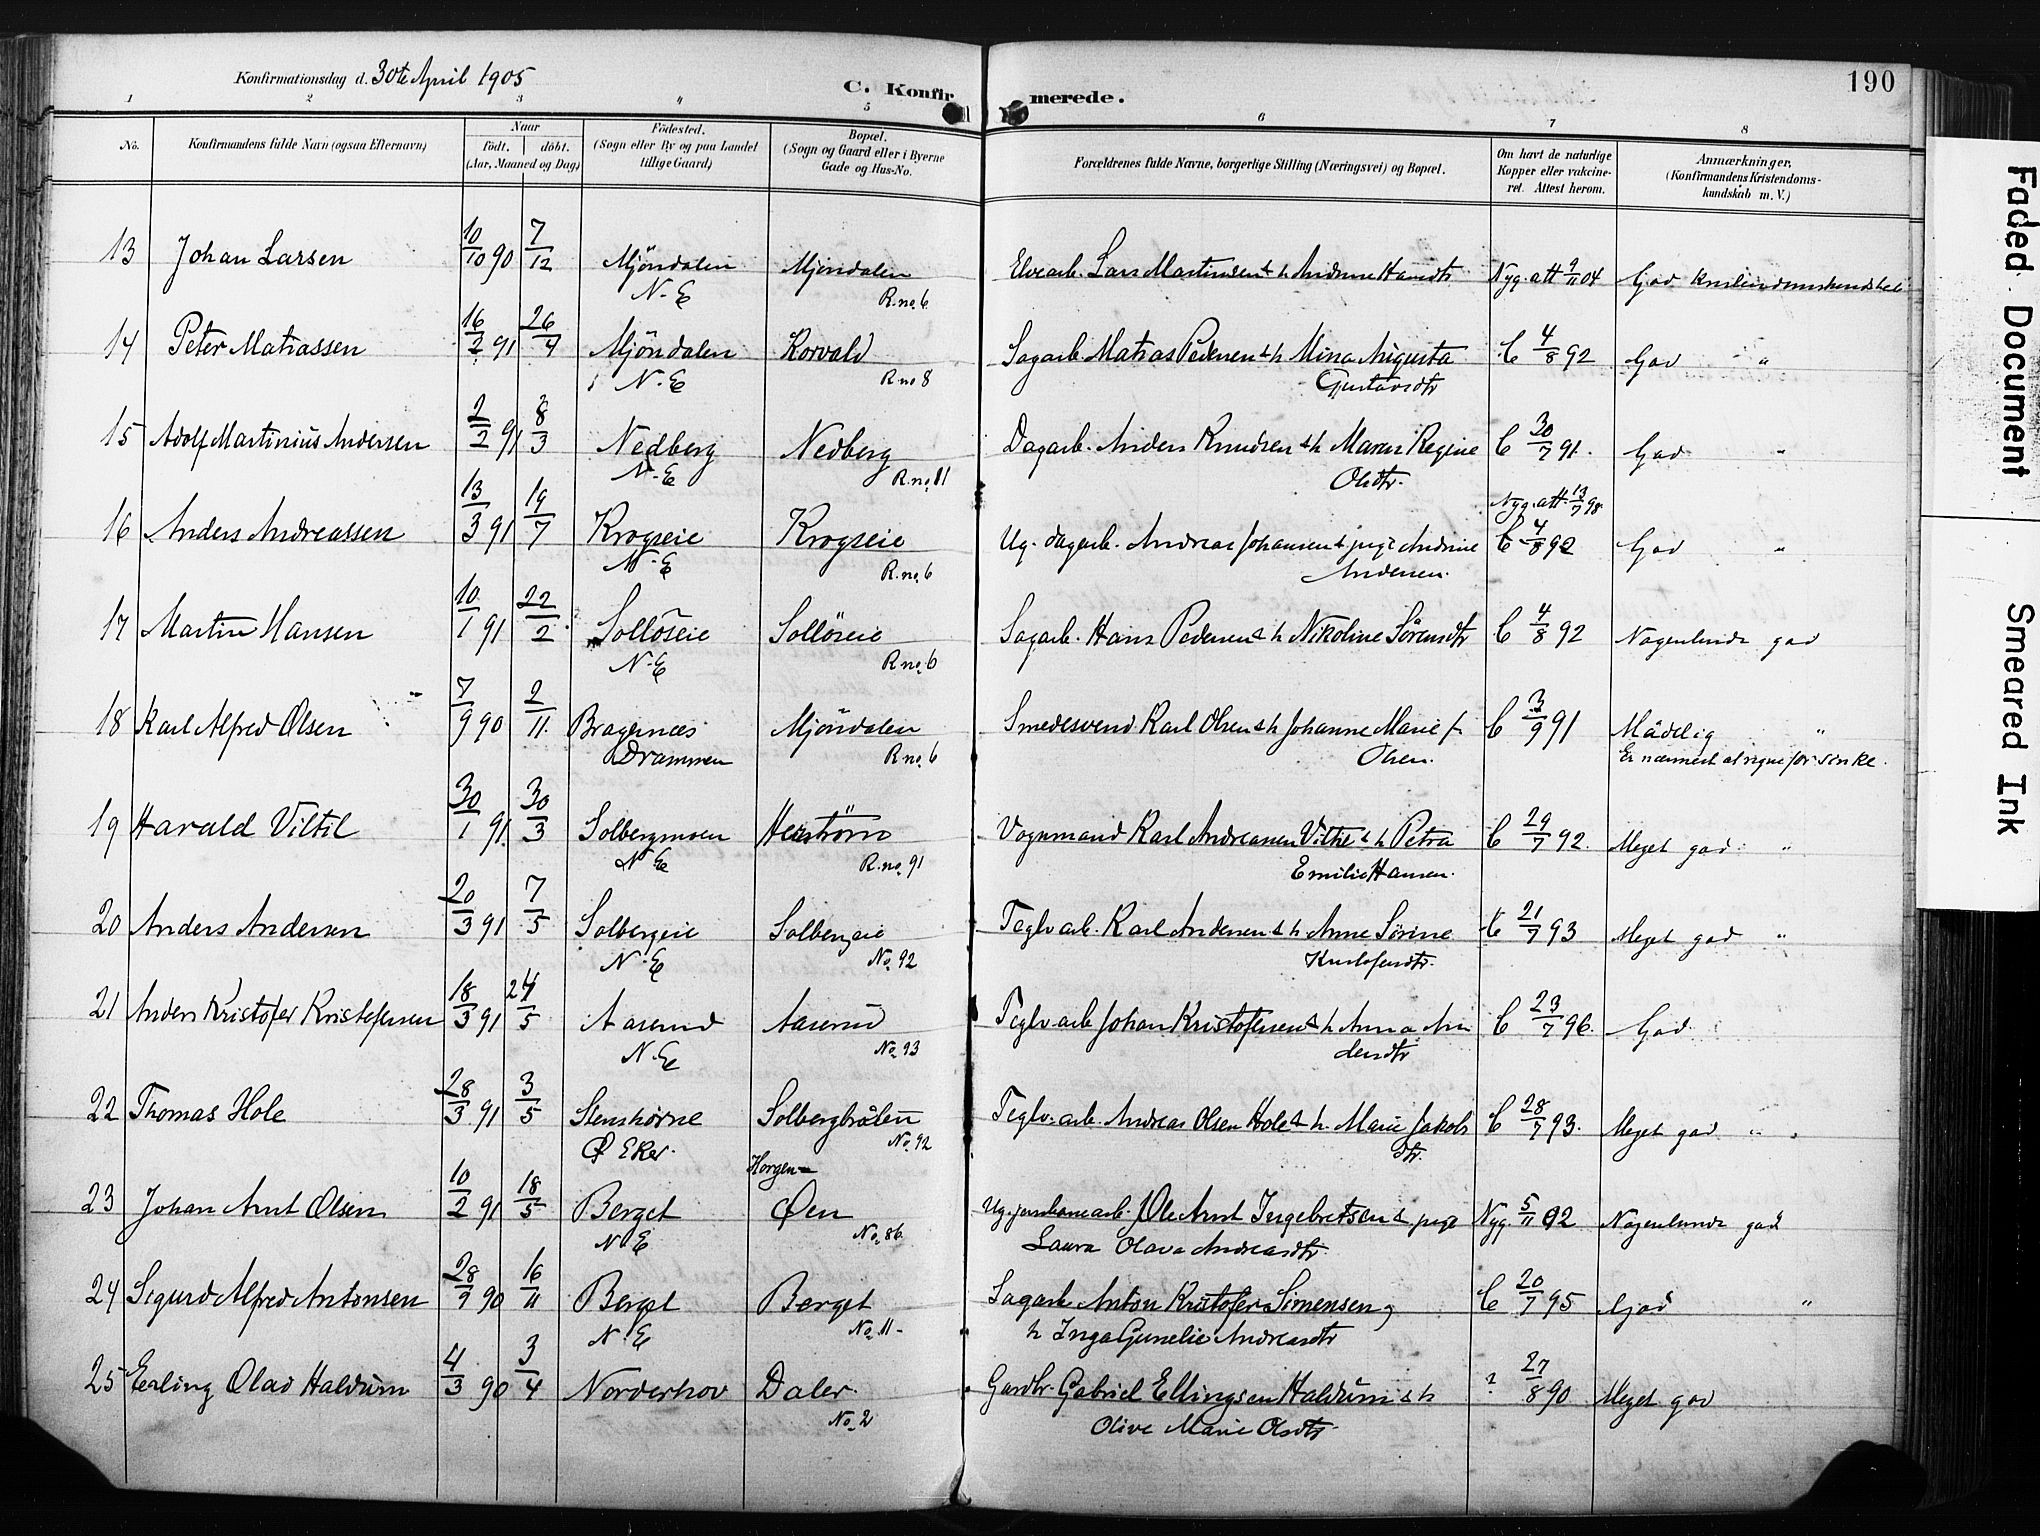 Konfirmationsdag d. 30te April 1905
C. Konfirmerede.
190
1 2 3 4 5 6 7 8
No.
Konfirmandens fulde Navn (ogsaa Efternavn)
Naar
født. døbt.
(Aar, Maaned og Dag)
Fødested.
(Sogn eller By og paa Landet
tillige Gaard)
Bopæl.
(Sogn og Gaard eller i Byerne
Gade og Hus-No.
Forældrenes fulde Navne, borgerlige Stilling (Næringsvei) og Bopæl.
Om havt de naturlige
Kopper eller vakcine-
ret. Attest herom.
Anmærkninger,
(Konfirmandens Kristendoms-
kundskab m. V.)
13 Johan Larsen 10/10 90 7/12 Mjöndalen Mjöndalen Elvearb. Lars Martinsen & h Nyg. att 9/11 04 God
N.E R.no. 6
14 Peter Matiassen 16/2 91 26/4 Mjöndalen Korvald Sagarb. Matias Pedersen & h Mina Augusta C 4/8 92 God "
N.E R.no 8 Gustavsdtr
15 Adolf Martinius Andersen 2/2 91 8/3 Nedberg Nedberg Dagarb. Anders Knudsen & h Maren Regine C 30/7 91. God "
N.E R.no. 11 Olsdtr.
Nyg. att. 13/7 98
16 Anders Andreassen 13/3 91 19/7 Krogseie Krogseie Ug. dagarb. Andreas Johansen & pige Andrine C 4/8 92 God "
N.E R.no. 6 Andersen.
17 Martin Hansen 10/1 91 22/2 Sollöseie Sollöseie Sagarb. Hans Pedersen & h Nikoline Sörensdtr C 4/8 92 Nogenlunde god
N.E R.no. 6
18 Karl Alfred Olsen 7/9 90 2/11 Bragernæs Mjöndalen Smedesvend Karl Olsen & h Johanne Marie f. C 3/9 91 Mådelig "
Drammen R.no. 6 Olsen. Er nærmest at regne for sinke.
19 Harald Viltil 30/1 91. 30/3 Solbergmoen Vognmand Karl Andreassen & h Petra C 29/7 92. Meget god "
N.E R.no. 91 Emilie Hansen.
20 Anders Andersen 20/3 91 7/5 Solbergeie Solbergeie Teglv.arb. Karl Andersen & h Anne Sörine C 21/7 93 Meget god "
N.E No. 92 Kristofersdtr.
21 Anders Kristofer Kristofersen 18/3 91 24/5 Aaserud Aaserud Teglv.arb Johan Kristofersen & h Anna An C 23/7 96. God
N.E No. 93 dersdtr
22 Thomas Hole 28/3 91 3/5 Stenshorne Solberghølen Teglv.arb. Andreas Olsen Hole & h. Marie Jakobs C 28/7 93. Meget god "
Ø Eker. No. 92 dtr.
Horgen-
23 Johan Arnt Olsen 10/2 91 18/5 Berget Øen Ug. Ole Arnt Ingebretsen & pige Nyg. 5/11 02 Nogenlunde god
N.E No. 86 Laura Olava Andreasdtr
24 Sigurd Alfred Antonsen 28/9 90 16/11 Berget Berget Sagarb. Anton Kristofer Simensen, C 20/7 95 God "
N.E No. 11 - h Inga Gunelie Andreasdtr
25 Erling Olad Haldum 4/3 90 3/4 Norderhov Daler. Gardbr. Gabriel Ellingsen Haldum & h ? 27/8 90 Meget god
No. 2 Olive Marie Olsdtr
Faded Document
Smeared Ink